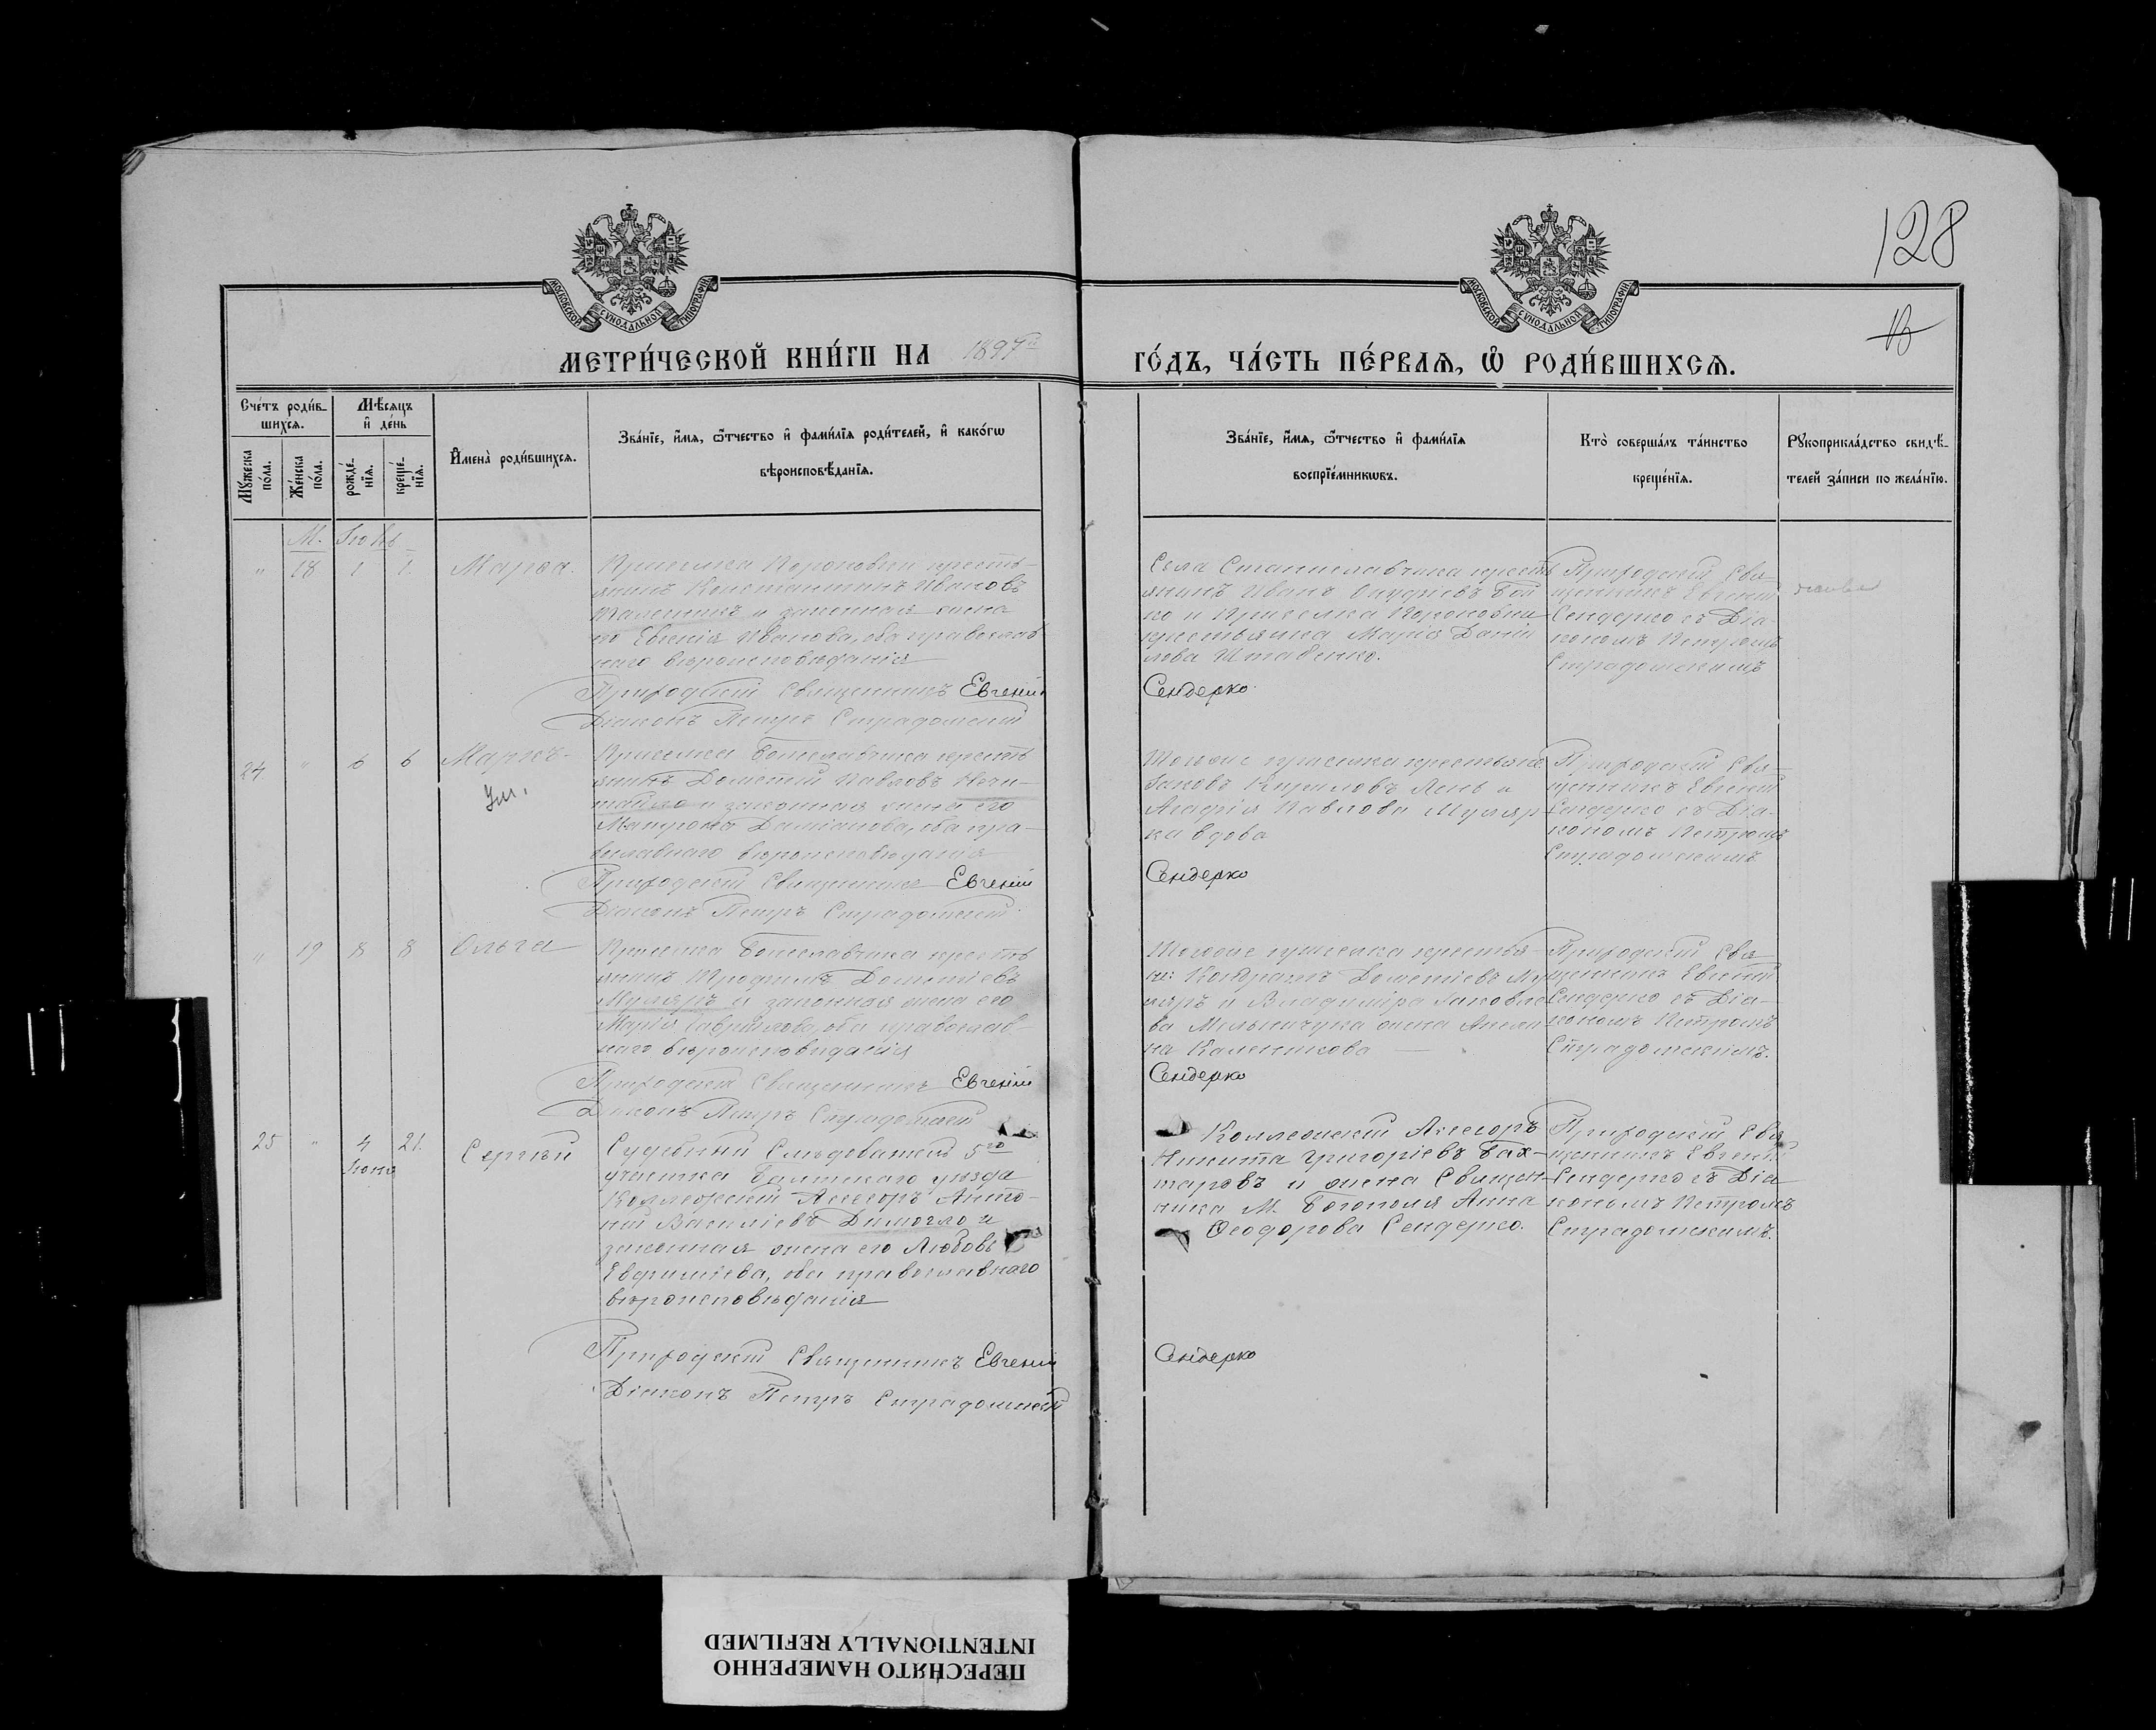 128
18
МОСКОВСКОЙ СѴНОДАЛЬНОЙ ТИПОГРАФІИ
МОСКОВСКОЙ СѴНОДАЛЬНОЙ ТИПОГРАФІИ
МЕТРИ́ЧЕСКОЙ КНИ́ГИ НА 1897й
ГО́ДЪ, ЧА́СТЬ ПЕ́РВАѦ, Ѡ РОДИ́ВШИХСѦ.
Сче́тъ роди́в-
шихсѧ.
Мѣ́сѧцъ
и҆ де́нь
Мꙋ́жеска
по́ла.
Же́нска
по́ла.
рожде́-
нїѧ.
креще́-
нїѧ.
И҆мена̀ роди́вшихсѧ.
Зва́нїе, и҆́мѧ, ѻ҆́тчество и҆ фами́лїѧ роди́телей, и҆ како́гѡ
вѣроисповѣ́данїѧ.
Зва́нїе, и҆́мѧ, ѻ҆́тчество и҆ фами́лїѧ
воспрїе́мникѡвъ.
Кто̀ соверша́лъ та́инство
креще́нїѧ.
Рꙋкоприкла́дство свидѣ́-
телей за́писи по жела́нїю.
М. Іюнь
" 18 1 1. Марѳа.
Приселка Короновки кресть-
янинъ Константинъ Ивановъ
и законная жена
его Евгенія Иванова, оба православ
наго вѣроисповѣданія
Приходскій Священникъ Евгеній
Діаконъ Петръ Страдомскій
Села Станиславчика кресть
янинъ Иванъ Бой
ко и Приселка Короновки
крестьянка Марія Даніи
лова Штабенко.
Сендерко
Приходскій Свя-
щенникъ Евгеній
Сендерко съ Діа-
кономъ Петромъ
Страдомскимъ
24 " 6 6 Маркъ
Ум.
Приселка Болеславчика кресть
янинъ Дометій Павловъ Нечи-
тайло и законная жена его
Демьянова, оба пра-
вославнаго вѣроисповѣданія
Приходскій Священникъ Евгеній
Діаконъ Петръ Страдомскій
Тогоже приселка крестьяне
Іаковъ Кириловъ Лень и
Агафія Павлова Муляр
ка вдова
Сендерко
Приходскій Свя-
щенникъ Евгеній
Сендерко съ Діа-
кономъ Петромъ
Страдомскимъ
" 19 8 8 Ольга
Приселка Болеславчика кресть
янинъ Трофимъ Дометіевъ
Муляръ и законная жена его
Марія Гаврилова, оба православ-
наго вѣроисповѣданія
Приходскій Священникъ Евгеній
Діаконъ Петръ Страдомскій
Тогоже приселка крестья-
не: Кондратъ Дометіевъ Му
ляръ и Владиміра Іаковле
ва Мельничука жена Акели
на Каленикова
Сендерко
Приходскій Свя
щенникъ Евгеній
Сендерко съ Діа-
кономъ Петромъ
Страдомскимъ.
25 " 4 21. Сергѣй
Іюня
Судебный Слѣдователь 5го
участка Балтскаго уѣзда
Коллежскій Ассесоръ Анто-
ній Василіевъ Димогло и
законная жена его Любовь
Евфиміева, оба православнаго
вѣроисповѣданія
Приходскій Священникъ Евгеній
Діаконъ Петръ Страдомскій
Коллежскій Ассесоръ
Никита Григоріевъ Бах-
таровъ и жена Священ-
ника М. Богополя Анна
Ѳеодорова Сендерко.
Сендерко
Приходскій Свя
щенникъ Евгеній
Сендерко съ Діа
кономъ Петромъ
Страдомскимъ.
ПЕРЕСНЯТО НАМЕРЕННО
INTENTIONALLY REFILMED